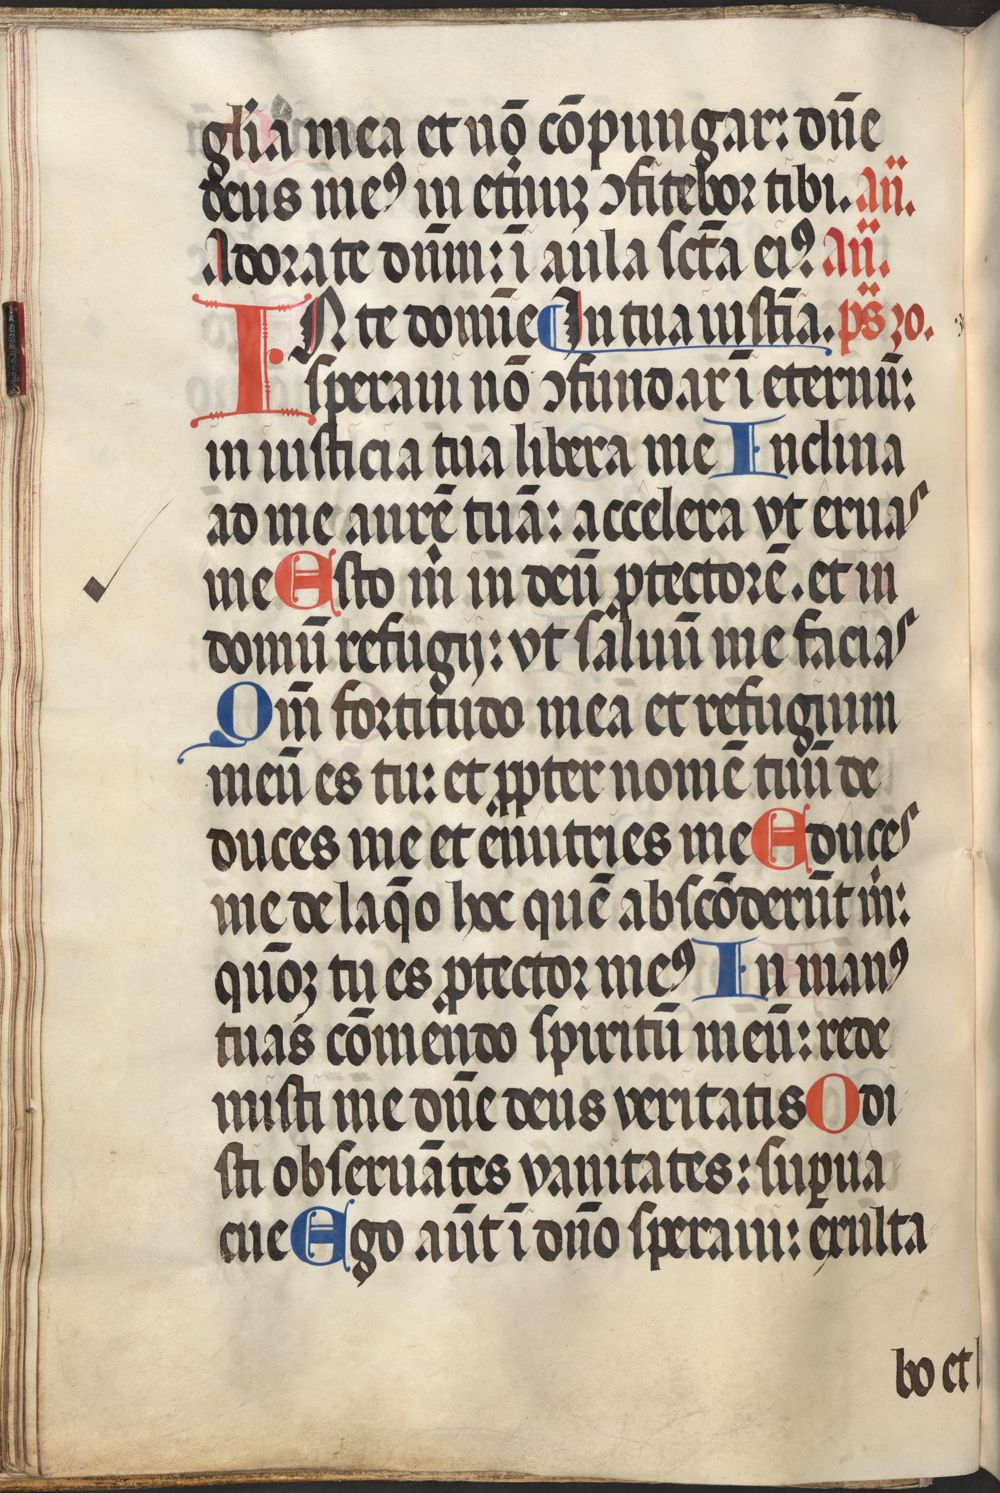 gl̄ia mea et nō cōpungar: dn̄e
deus me⁹ in et̄nuꝫ ↄfitebor tibi. an̄.
Adorate dūm: ī aula sct̄a ei⁹ an̄.
IN te domīe In tua iustīa. ps̄ 30.
speraui nō ↄfundar ī eternū:
in iusticia tua libera me Inclina
ad me aurē tuā: accelera vt eruas
me Esto m̄ in deū ꝓtectorē. et in
domū refugij: vt saluū me facias
Qm̄ fortitudo mea et refugium
meū es tu: et ꝓpter nomē tuū de
duces me et en̄utries me Educes
me de laq̄o hoc quē abscōderūt m̄:
qūoꝫ tu es ꝓtector me⁹ In man⁹
tuas cōmendo spiritū meū: rede
misti me dn̄e deus veritatis Odi
sti obseruātes vanitates: suꝑua
cue Ego aūt ī dn̄o speraui: exulta
bo et l